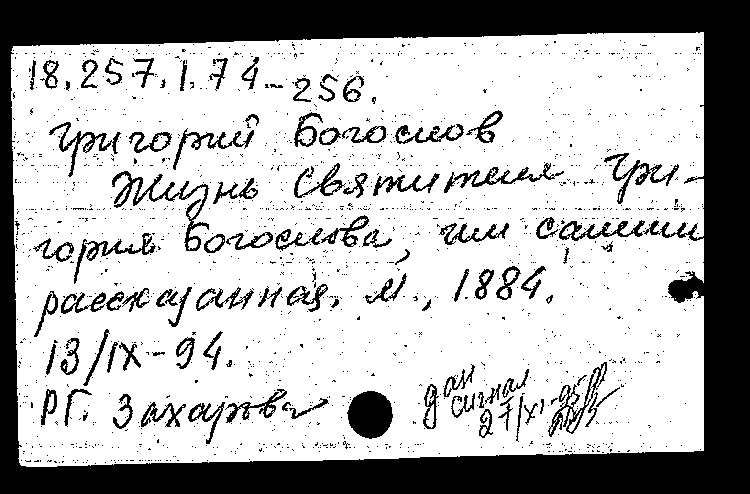 18.257.1.74-256.
Григорий Богослов
Жизнь Святителя Гри-
гория Богослова, им самим
рассказанная. М., 1884.
13/IX-94.
РГ. Захарова
дан
сигнал
27/XI-95